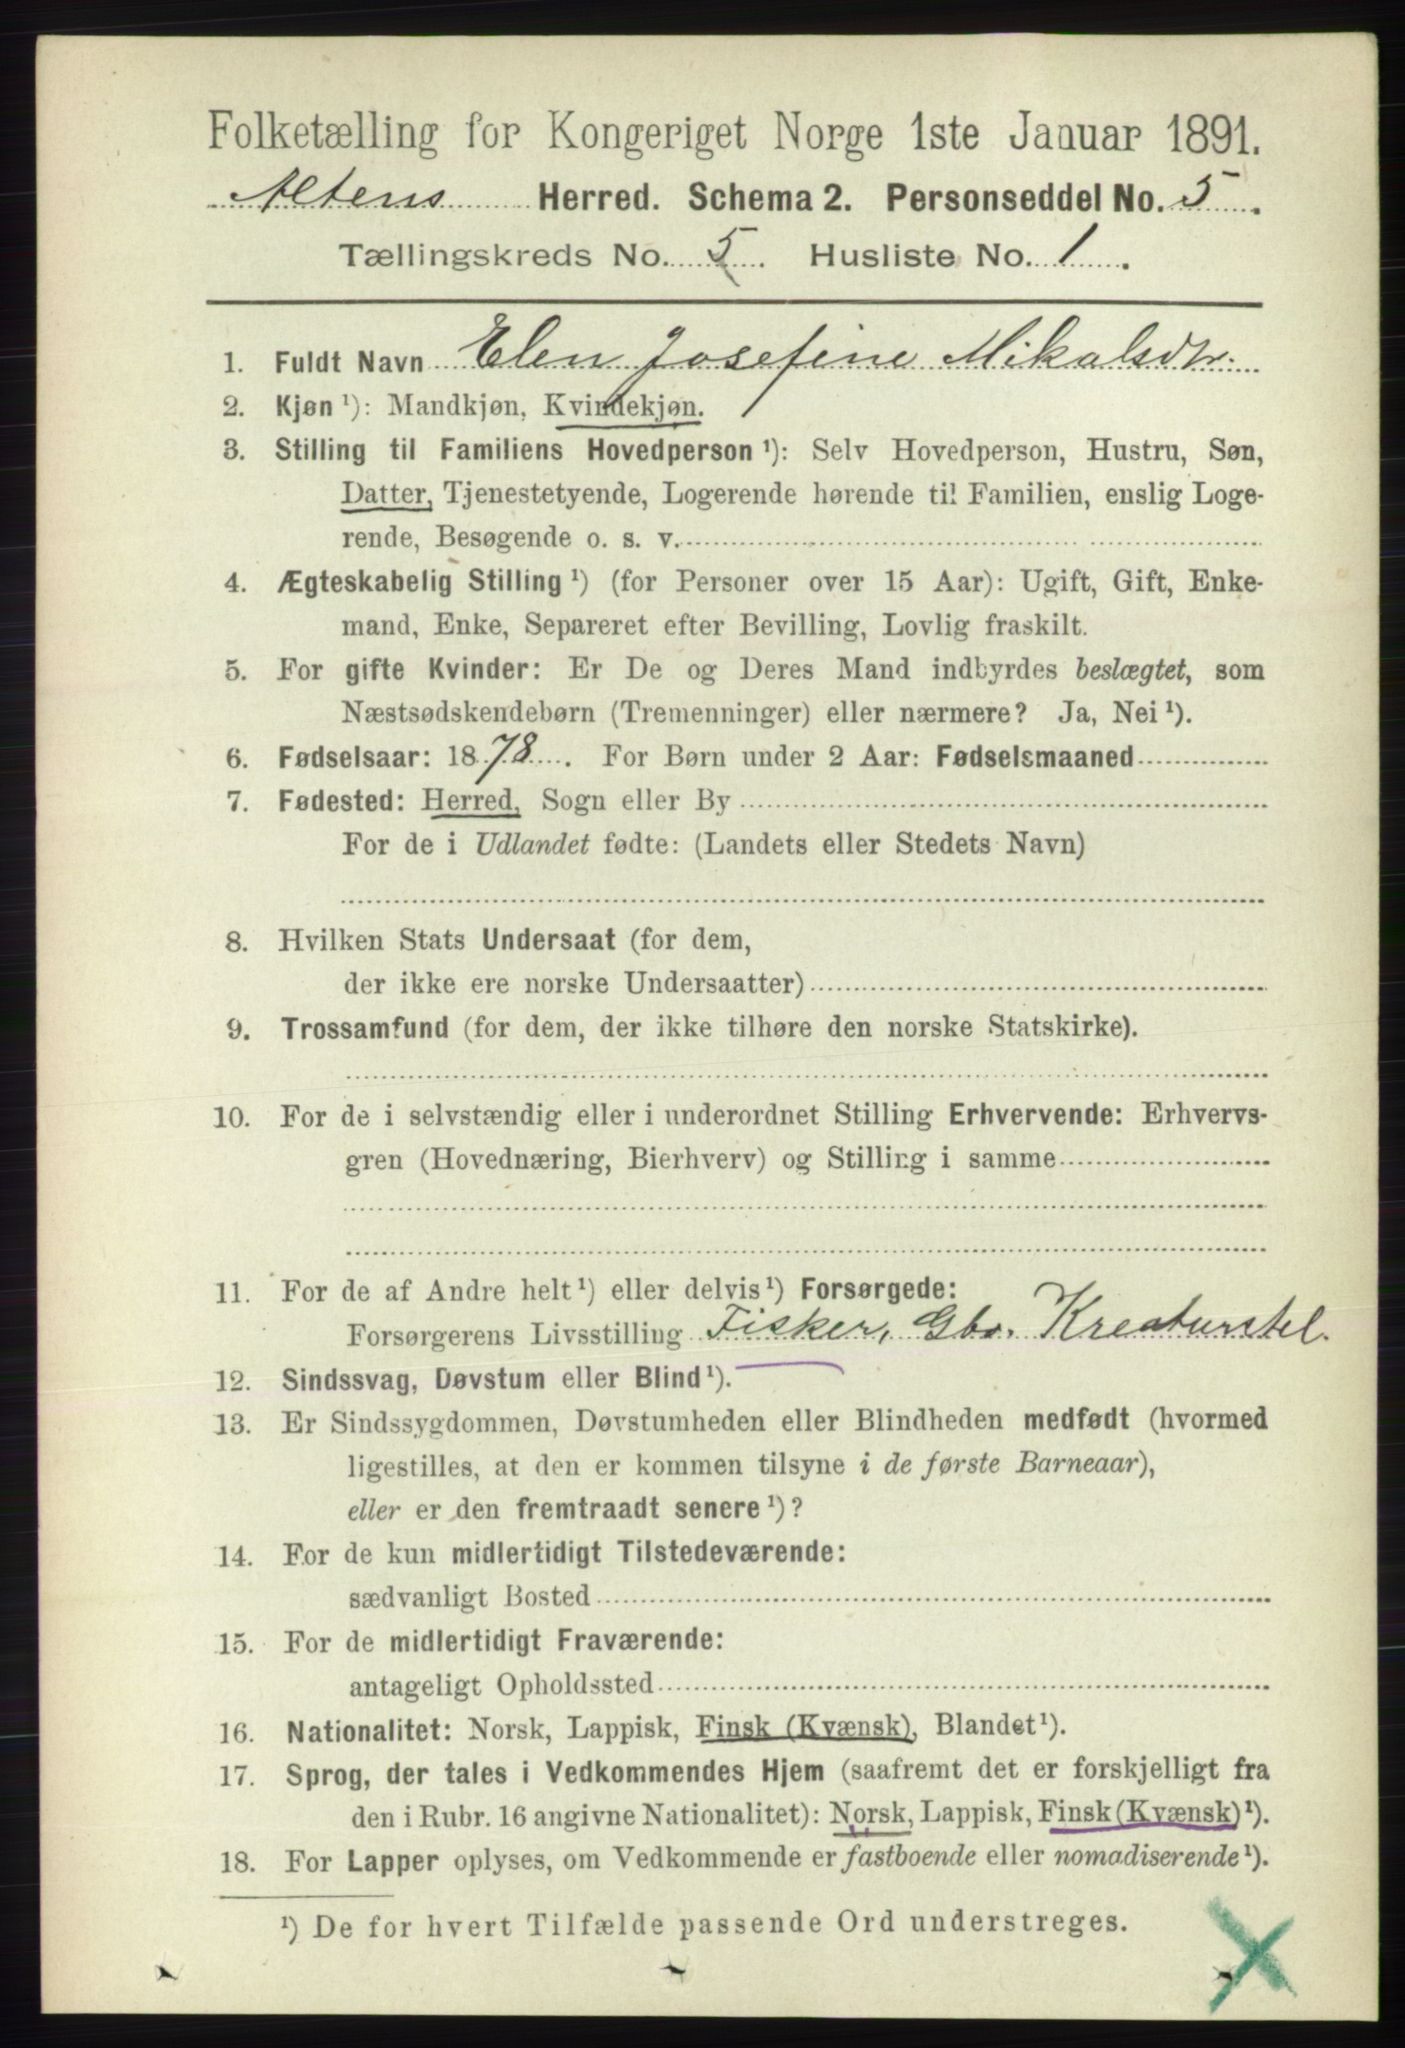 Folketælling for Kongeriget Norge 1ste Januar 1891.
Altens Herred. Schema 2. Personseddel No. 5.
Tællingskreds No. 5. Husliste No. 1.
1. Fuldt Navn Elen Josefine Mikalsdtr.
2. Kjøn ¹): Mandkjøn, Kvindekjøn.
3. Stilling til Familiens Hovedperson ¹): Selv Hovedperson, Hustru, Søn,
Datter, Tjenestetyende, Logerende hørende til Familien, enslig Loge-
rende, Besøgende o. s. v.
4. Ægteskabelig Stilling ¹) (for Personer over 15 Aar): Ugift, Gift, Enke-
mand, Enke, Separeret efter Bevilling, Lovlig fraskilt.
5. For gifte Kvinder: Er De og Deres Mand indbyrdes beslægtet, som
Næstsødskendebørn (Tremenninger) eller nærmere? Ja, Nei ¹).
6. Fødselsaar: 1878. For Børn under 2 Aar: Fødselsmaaned
7. Fødested: Herred, Sogn eller By
For de i Udlandet fødte: (Landets eller Stedets Navn)
8. Hvilken Stats Undersaat (for dem,
der ikke ere norske Undersaatter)
9. Trossamfund (for dem, der ikke tilhøre den norske Statskirke).
10. For de i selvstændig eller i underordnet Stilling Erhvervende: Erhvervs-
gren (Hovednæring, Bierhverv) og Stilling i samme
11. For de af Andre helt ¹) eller delvis ¹) Forsørgede:
Forsørgerens Livsstilling Fisker, Gbr. Kreaturstel.
12. Sindssvag, Døvstum eller Blind ¹).
13. Er Sindssygdommen, Døvstumheden eller Blindheden medfødt (hvormed
ligestilles, at den er kommen tilsyne i de første Barneaar),
eller er den fremtraadt senere ¹)?
14. For de kun midlertidigt Tilstedeværende:
sædvanligt Bosted
15. For de midlertidigt Fraværende:
antageligt Opholdssted
16. Nationalitet: Norsk, Lappisk, Finsk (Kvænsk), Blandet ¹).
17. Sprog, der tales i Vedkommendes Hjem (saafremt det er forskjelligt fra
den i Rubr. 16 angivne Nationalitet): Norsk, Lappisk, Finsk (Kvænsk) ¹).
18. For Lapper oplyses, om Vedkommende er fastboende eller nomadiserende ¹).
¹) De for hvert Tilfælde passende Ord understreges.